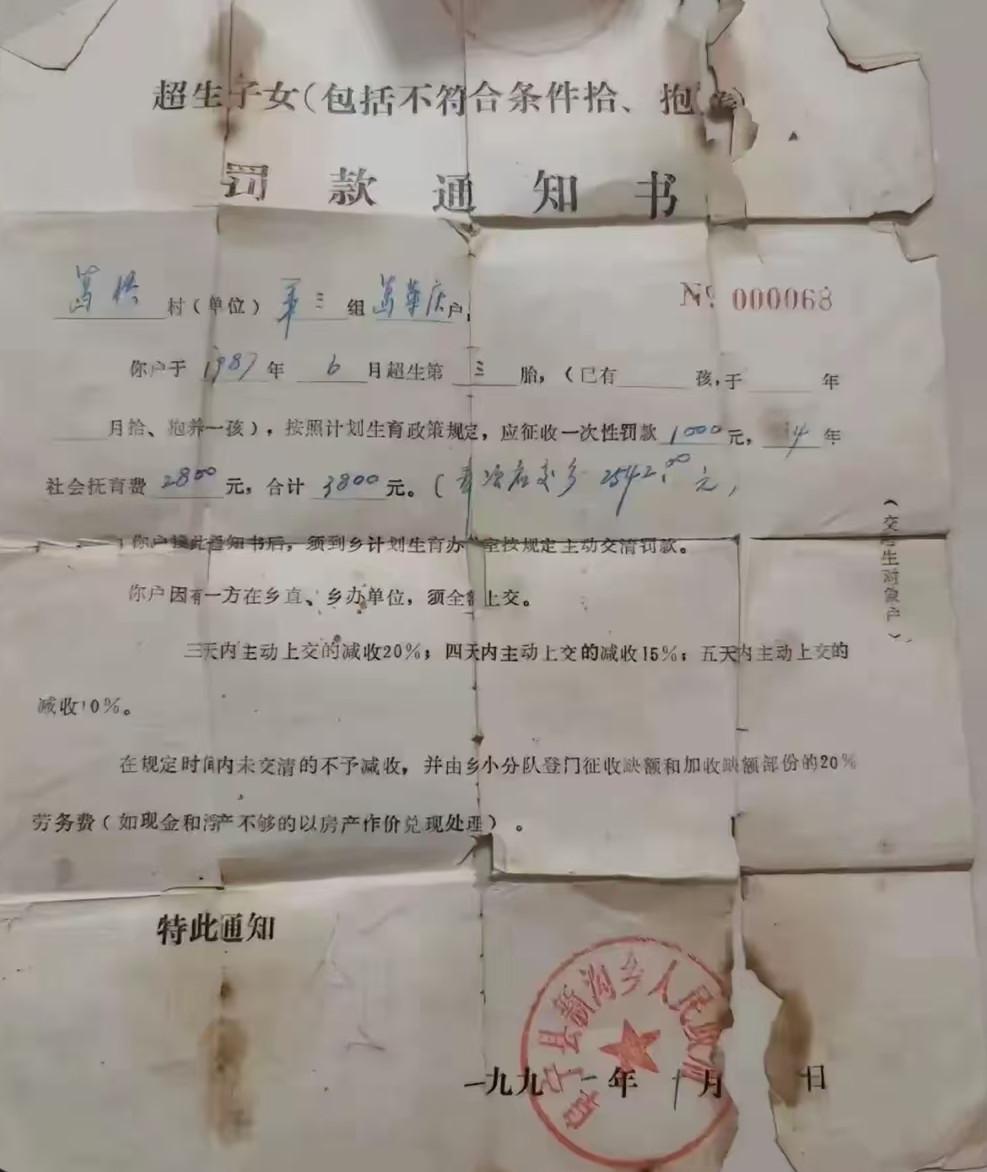 超生子女(包括不符合条件拾、抱养)
罚款通知书
葛桥村(单位)第三组葛華庆户
№ 000068
你户于1987年6月超生第三胎,(已有 孩,于 年
月拾、抱养一孩),按照计划生育政策规定,应征收一次性罚款1000元,14年
社会抚育费2800元,合计3800元。(应交乡2542.00元)
你户接此通知书后,须到乡计划生育办 室按规定主动交清罚款。
你户因有一方在乡直、乡办单位,须全额上交。
三天内主动上交的减收20%;四天内主动上交的减收15%;五天内主动上交的
减收10%。
在规定时间内未交清的不予减收,并由乡小分队登门征收缺额和加收缺额部份的20%
劳务费(如现金和浮产不够的以房产作价兑现处理)。
(交超生对象户)
特此通知
宁县新沟乡人民政府
一九九一年 月 日